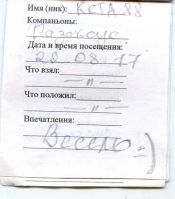 Имя (ник): КСТА 88
Компаньоны:
Дата и время посещения:
20 08 17
Что взял:
— " —
Что положил:
— " —
Впечатления:
Весело =)